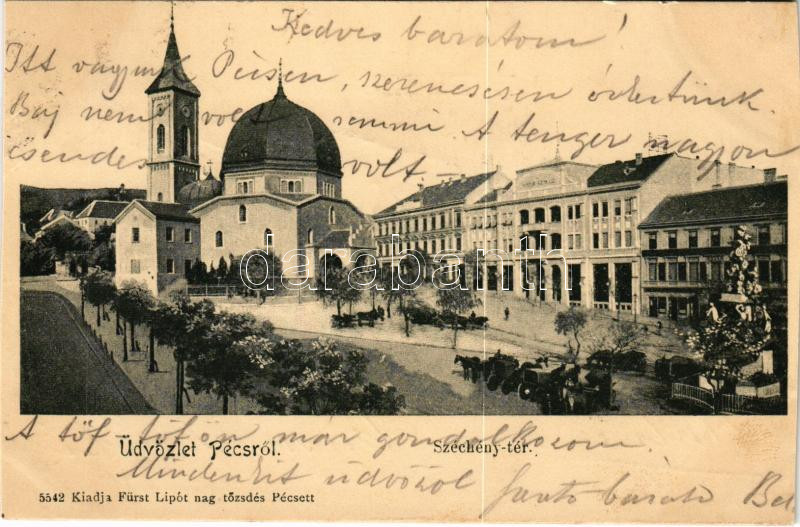 Kedves barátom!
Itt vagyunk Pécsen, szerencsésen érkeztünk.
Baj nem volt semmi. A tenger nagyon
csendes volt —
darabanth
A töf töfön már gondolkozom.
Üdvözlet Pécsről.
Széchény-tér.
Mindenkit üdvözöl
barátod
5542 Kiadja Fürst Lipót nag tőzsdés Pécsett